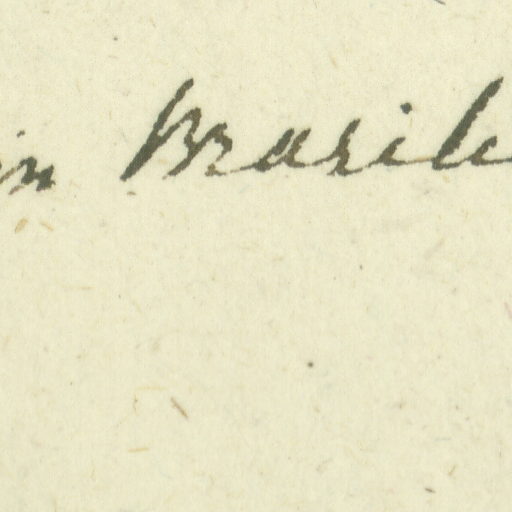 in Brasili